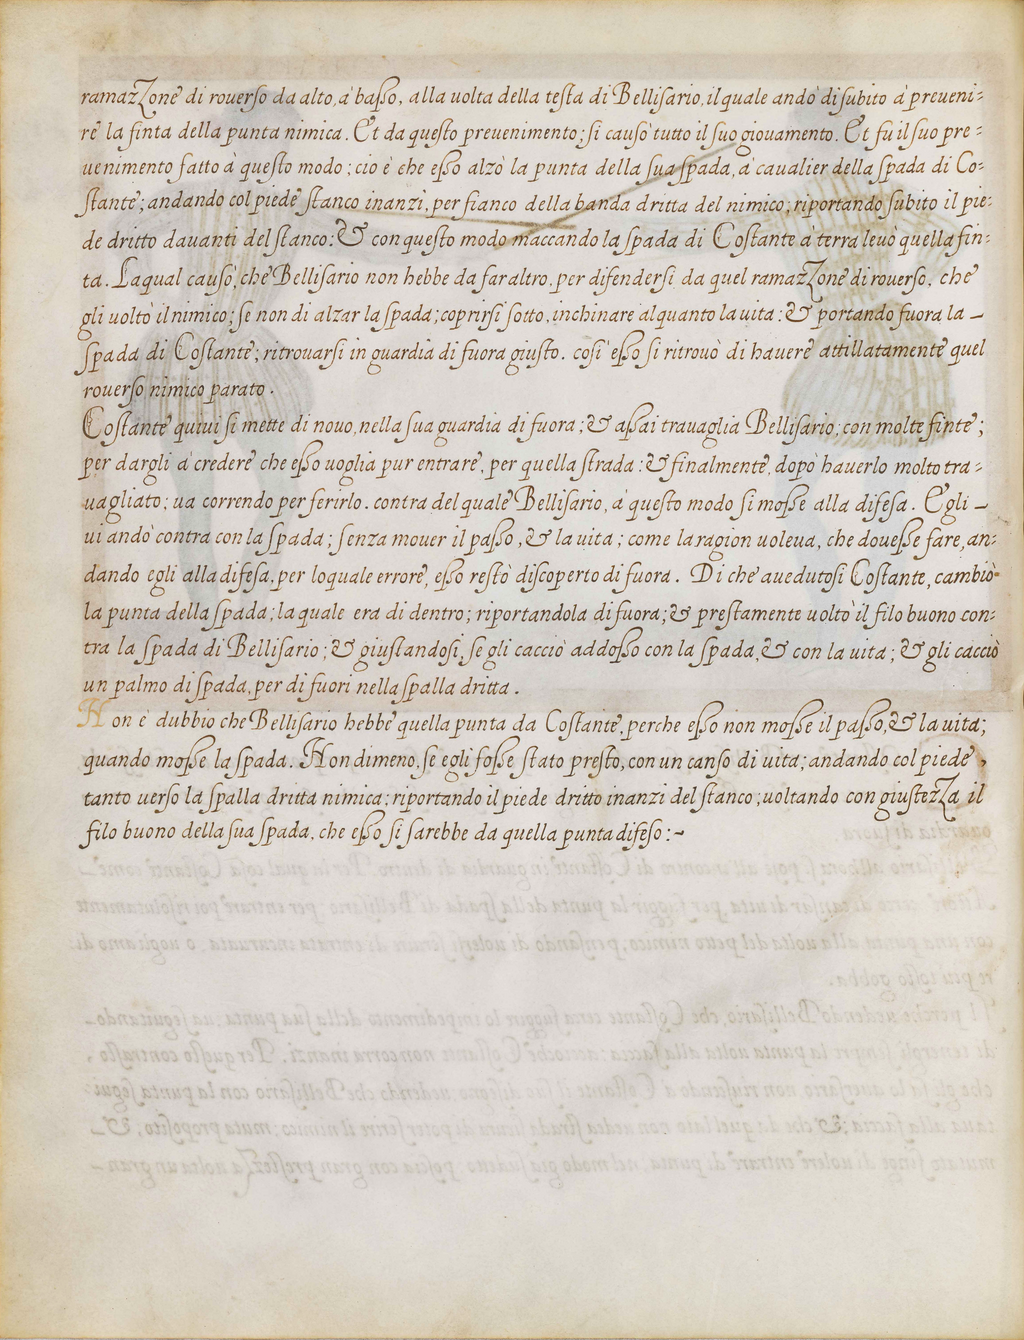 ramazzone di rouerso da alto, à basso, alla uolta della testa di Bellisario, il quale andò di subito à preueni=
re la finta della punta nimica. Et da questo preuenimento; si causò tutto il suo giouamento. Et fu il suo pre=
uenimento fatto à questo modo; cio è che esso alzò la punta della sua spada, à caualier della spada di Co=
stante; andando col piede stanco inanzi, per fianco della banda dritta del nimico; riportando subito il pie=
de dritto dauanti del stanco: & con questo modo maccando la spada di Costante à terra leuò quella fin=
ta. La qual causò, che Bellisario non hebbe da far altro, per difendersi da quel ramazzone di rouerso, che
gli uoltò il nimico; se non di alzar la spada; coprirsi sotto, inchinare alquanto la uita: & portando fuora la –
spada di Costante; ritrouarsi in guardia di fuora giusto. così esso si ritrouò di hauere attillatamente quel
rouerso nimico parato.
Costante quiui si mette di nouo, nella sua guardia di fuora; & assai trauaglia Bellisario, con molte finte;
per dargli à credere che esso uoglia pur entrare, per quella strada: & finalmente, dopò hauerlo molto tra=
uagliato; ua correndo per ferirlo. contra del quale Bellisario, à questo modo si mosse alla difesa. Egli –
ui andò contra con la spada; senza mouer il passo, & la uita; come la ragion uoleua, che douesse fare, an=
dando egli alla difesa, per lo quale errore, esso restò discoperto di fuora. Di che auedutosi Costante, cambiò
la punta della spada; la quale era di dentro; riportandola di fuora; & prestamente uoltò il filo buono con=
tra la spada di Bellisario; & giustandosi, se gli cacciò addosso con la spada, & con la uita; & gli cacciò
un palmo di spada, per di fuori nella spalla dritta.
Non è dubbio che Bellisario hebbe quella punta da Costante, perche esso non mosse il passo, & la uita;
quando mosse la spada. Non dimeno, se egli fosse stato presto, con un canso di uita; andando col piede,
tanto uerso la spalla dritta nimica; riportando il piede dritto inanzi del stanco; uoltando con giustezza il
filo buono della sua spada, che esso si sarebbe da quella punta difeso:~